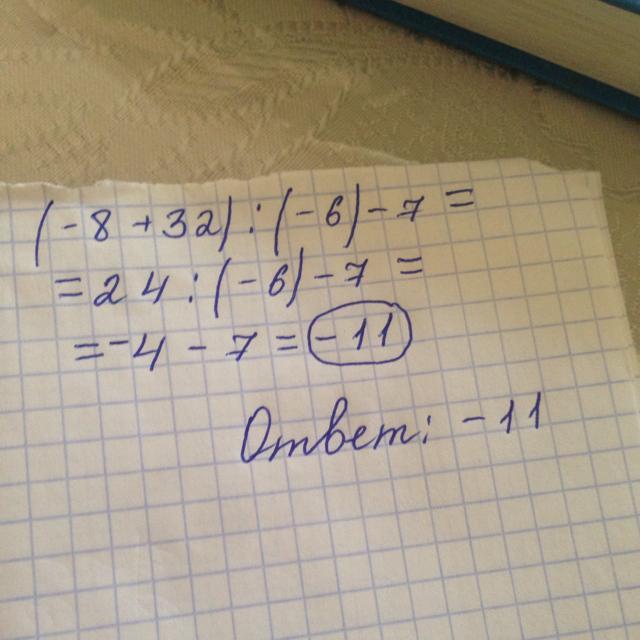 (-8 +32) : (-6) - 7 =
= 24 : (-6) - 7 =
= -4 - 7 = -11
Ответ: -11